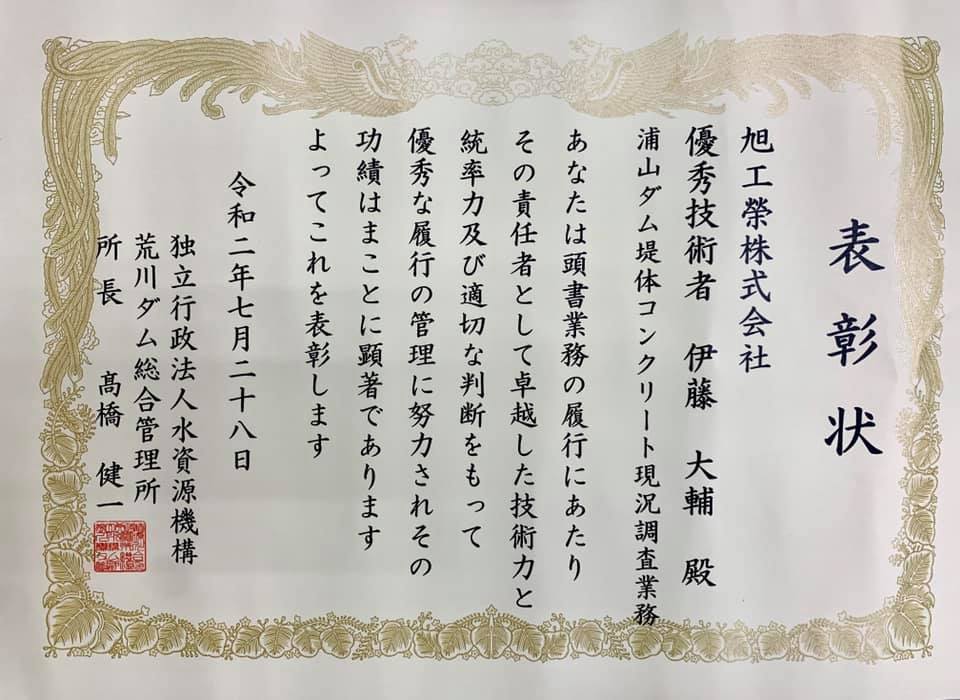 表彰状
旭工榮株式会社
優秀技術者 伊藤 大輔 殿
浦山ダム堤体コンクリート現況調査業務
あなたは頭書業務の履行にあたり
その責任者として卓越した技術力と
統率力及び適切な判断をもって
優秀な履行の管理に努力されその
功績はまことに顕著であります
よってこれを表彰します
令和二年七月二十八日
独立行政法人水資源機構
荒川ダム総合管理所
所長 髙橋 健一